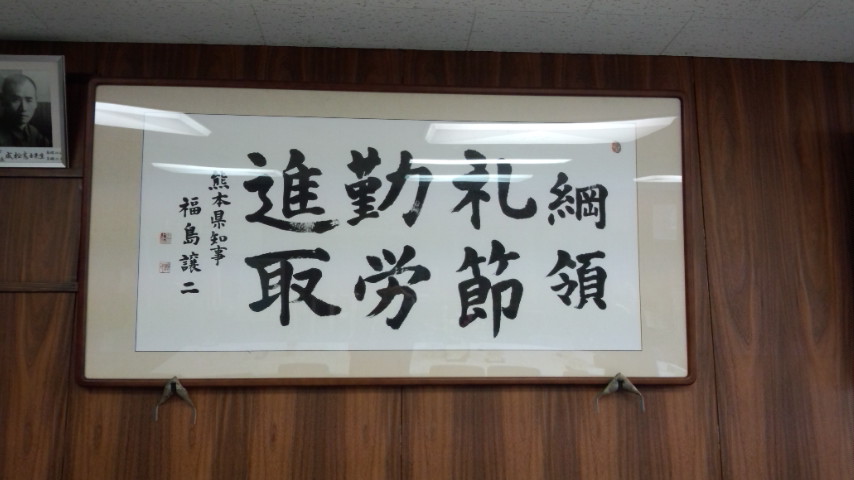 綱領
礼節
勤労
進取
熊本県知事
福島譲二